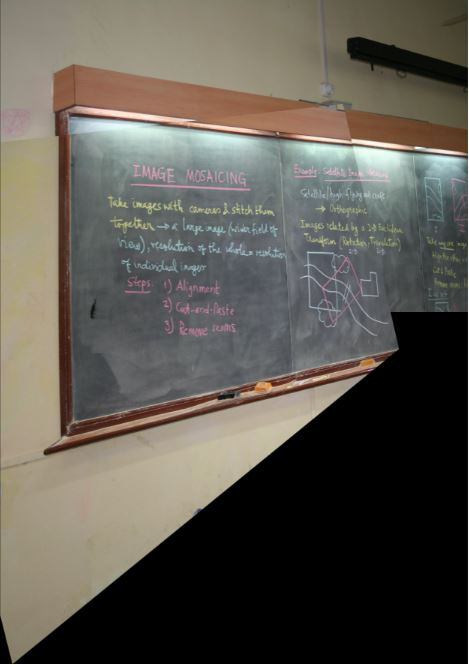 IMAGE MOSAICING
Take images with cameras & stitch them
together → a large image (wider field of
view), resolution of the whole = resolution
of individual images
Steps: 1) Alignment
2) Cut-and-Paste
3) Remove seams
Example: Satellite Image Mosaicing
Satellite/high-flying air craft
→ Orthographic
Images related by a 2-D Euclidean
Transform (Rotation, Translation)